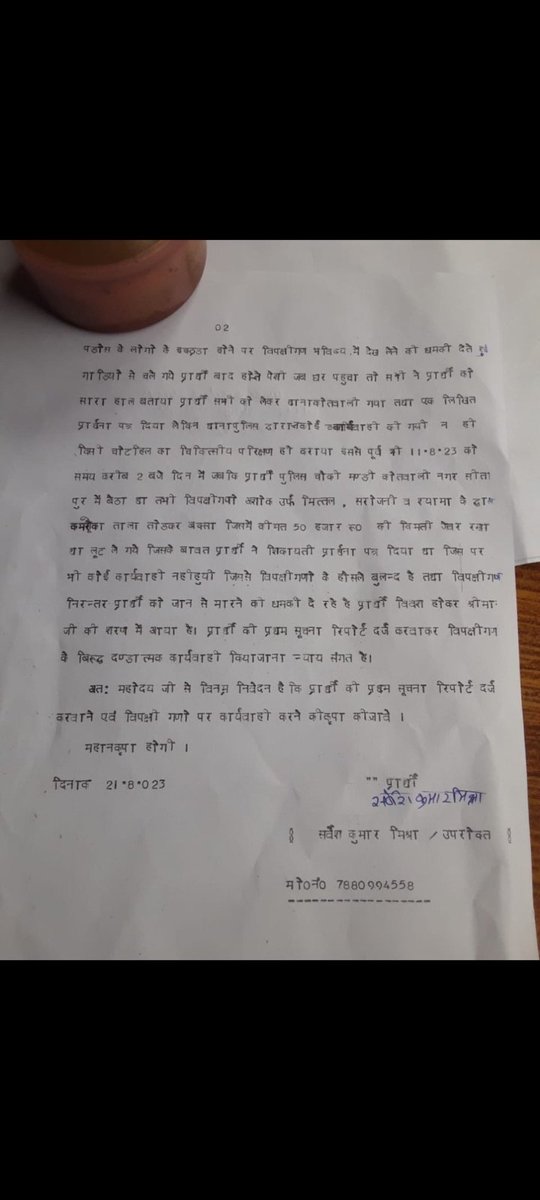 02
पडोस के लोगो के इकठ्ठा होने पर विपक्षीगण भविष्य में देख लेने की धमकी देते हुये
गाडियो से चले गये प्रार्थी बाद होते पेशी जब घर पहुचा तो सभी ने प्रार्थी को
सारा हाल बताया प्रार्थी सभी को लेकर थानाकोतवाली गया तथा एक लिखित
प्रार्थना पत्र दिया लेकिन थानापुलिस द्वारा नकोई कार्यवाही की गयी न ही
किसी चोटहिल का चिकित्सीय परिक्षण ही कराया इससे पूर्व भी 11·8·23 को
समय करीब 2 बजे दिन में जबकि प्रार्थी पुलिस चौकी मण्डी कोतवाली नगर सीता
पुर में बैठा था तभी विपक्षीगणो अशोक उर्फ मित्तल , सरोजनी व श्यामा के द्वारा
कमरेका ताला तोडकर बक्सा जिसमें कीमत 50 हजार रू0 की किमती जेवर रखा
था लूट ले गये जिसके बावत प्रार्थी ने शिकायती प्रार्थना पत्र दिया था जिस पर
भी कोई कार्यवाही नहीहुयी जिससे विपक्षीगणो के हौसले बुलन्द है तथा विपक्षीगण
निरन्तर प्रार्थी को जान से मारने की धमकी दे रहे है प्रार्थी विवश होकर श्रीमान
जी की शरण में आया है। प्रार्थी की प्रथम सूचना रिपोर्ट दर्ज करवाकर विपक्षीगण
के बिरूद्ध दण्डात्मक कार्यवाही कियाजाना न्याय संगत है।
अत: महोदय जी से विनम्र निवेदन है कि प्रार्थी की प्रथम सूचना रिपोर्ट दर्ज
करवाने एवं विपक्षी गणो पर कार्यवाही करने कीकृपा कीजावे ।
महानकृपा होगी ।
दिनाक 21·8·023
"" प्रार्थी
सर्वेश कुमार मिश्रा
सर्वेश कुमार मिश्रा / उपरोक्त
मो0नं0 7880994558